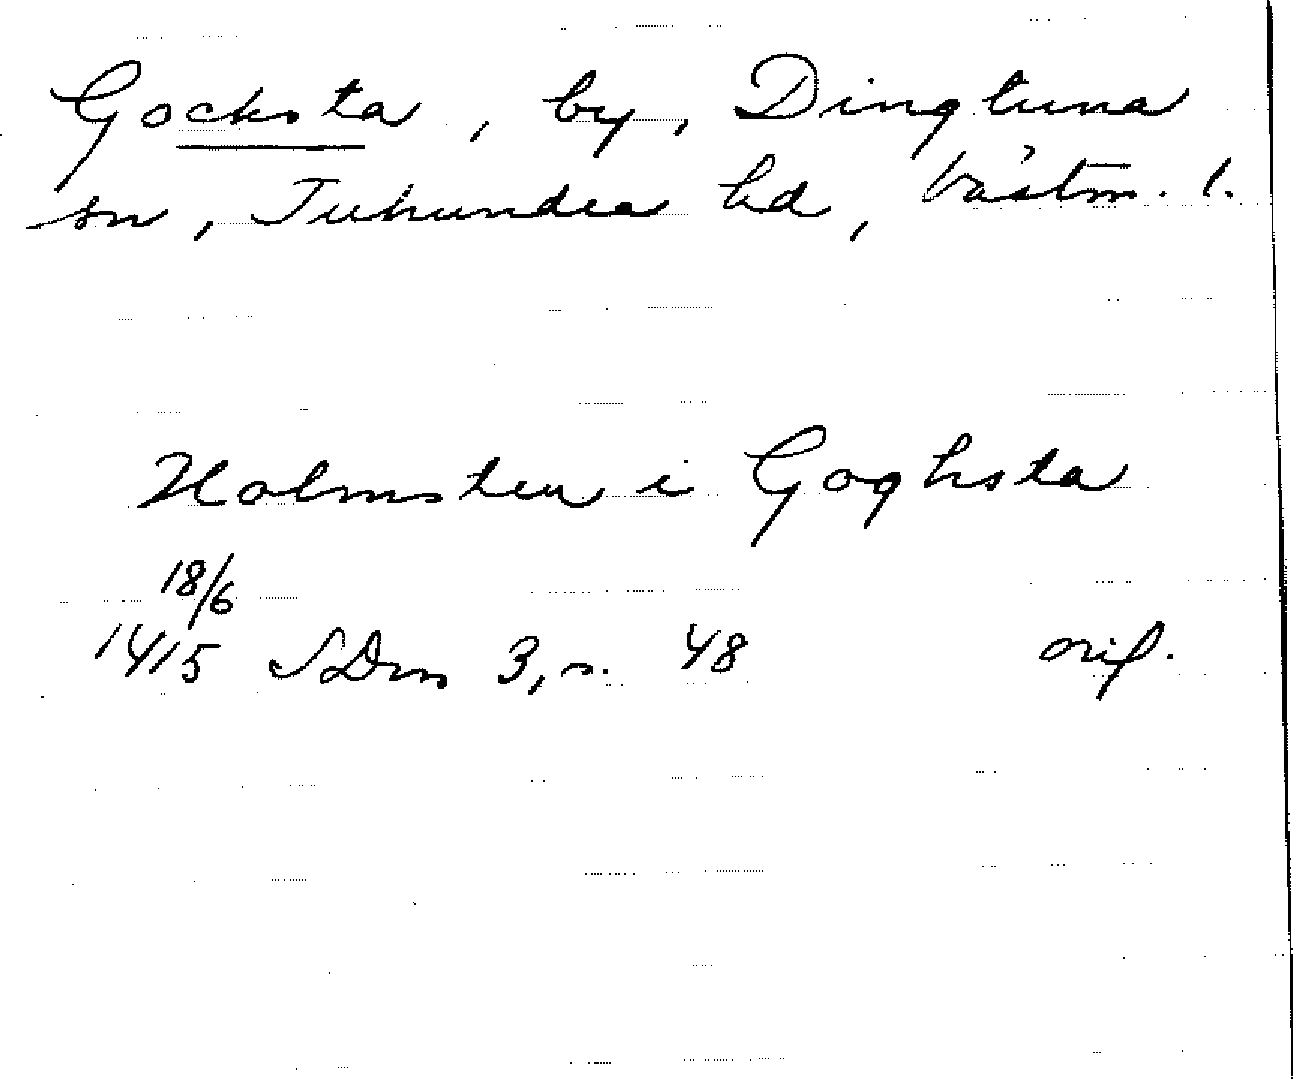 Gocksta, by, Dingtuna
sn, Tuhundra hd, Västm. l.
Holmsten i Goghsta
18/6
1415 SDns 3, s. 48 orig.